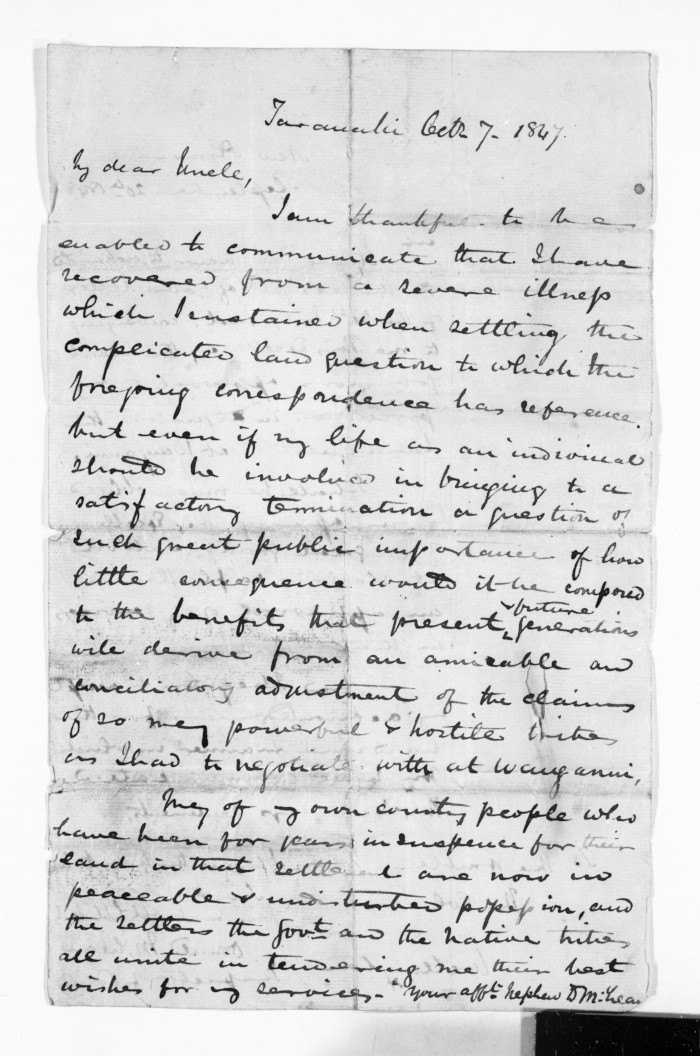 Taranaki Octr. 7- 1847.
My dear Uncle,
I am thankful to be
enabled to communicate that I have
recovered from a severe illness
which I sustained when settling the
complicated land question to which the
foregoing correspondence has reference.
but even if my life as an individual
should be involved in bringing to a
satisfactory termination a question of
such great public importance of how
little consequence would it be compared
to the benefits that present & future generations
will derive from an amicable and
conciliatory adjustment of the claims
of so many powerful & hostile tribes
as I had to negotiate with at Wanganui,
Many of my own country people who
have been for years in suspence for their
land in that settlement are now in
peaceable & undisturbed possession, and
the settlers the Govt. and the Native tribes
all unite in tendering me their best
wishes for my services- Your afft. Nephew D McLean